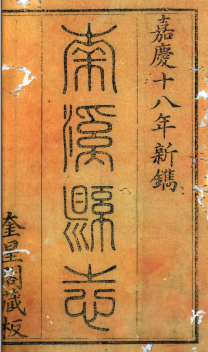 嘉慶十八年新鐫
南溪縣志
奎星閣藏板